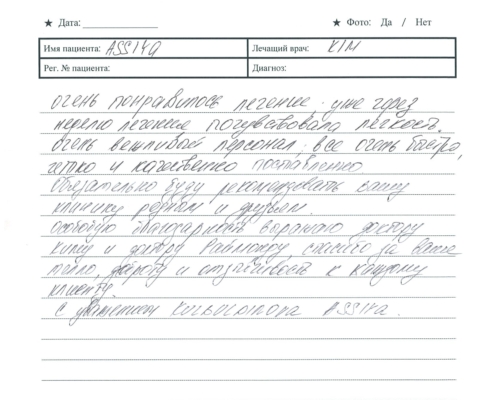 ★ Дата:
★ Фото: Да / Нет
Имя пациента: ASSIYA
Лечащий врач: KIM
Рег. № пациента:
Диагноз:
очень понравилось лечение, уже через
неделю лечения почувствовала легкость.
Очень вежливый персонал, все очень быстро,
четко и качественно поставленно
Обязательно буду рекомендовать вашу
клинику родным и друзьям.
Особую благодарность выражаю доктору
Киму и доктору Раймонду, спасибо за ваше
тепло, доброту и отзывчивость к каждому
клиенту!
С уважением ASSIYA.